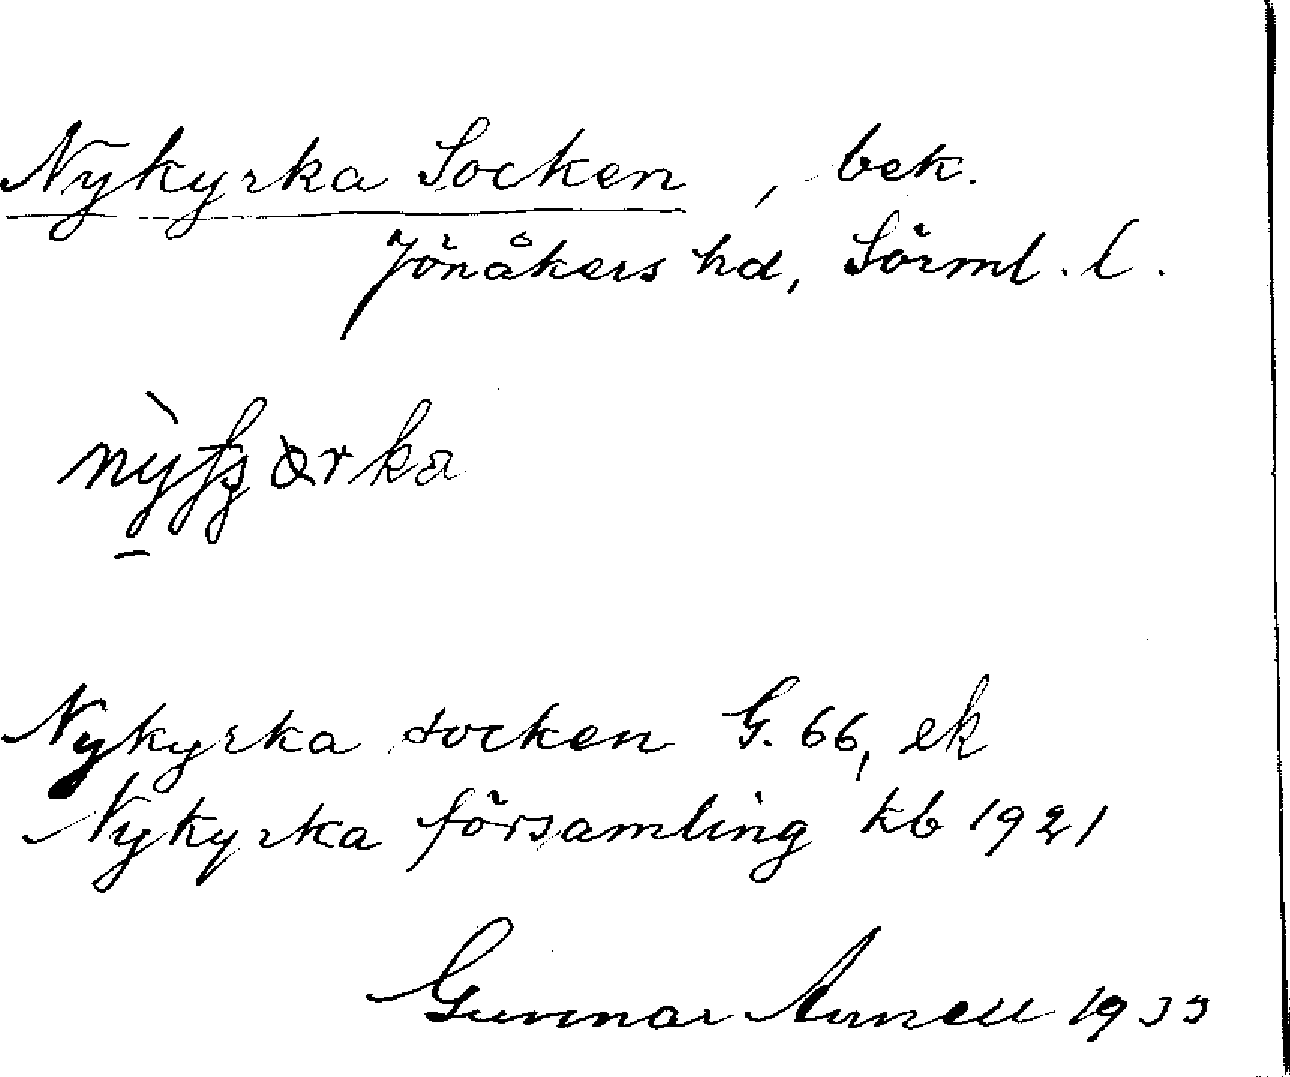 Nykyrka Socken, bek.
Jönåkers hd, Sörml. l.
Nykyrka socken G. 66, ek
Nykyrka församling kb 1921
Gunnar Arnell 1933